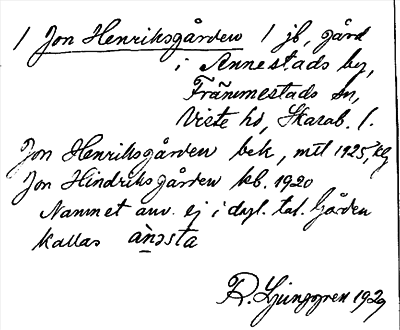 1 Jon Henriksgården 1 jb, gård
i Annestads by,
Främmestads sn,
Viste hd, Skarab. l.
Jon Henriksgården bek, mtl 1925, kg
Jon Hindriksgården kb. 1920
Namnet anv. ej i dgl. tal. Gården
kallas ànǝsta
R. Ljunggren 1929